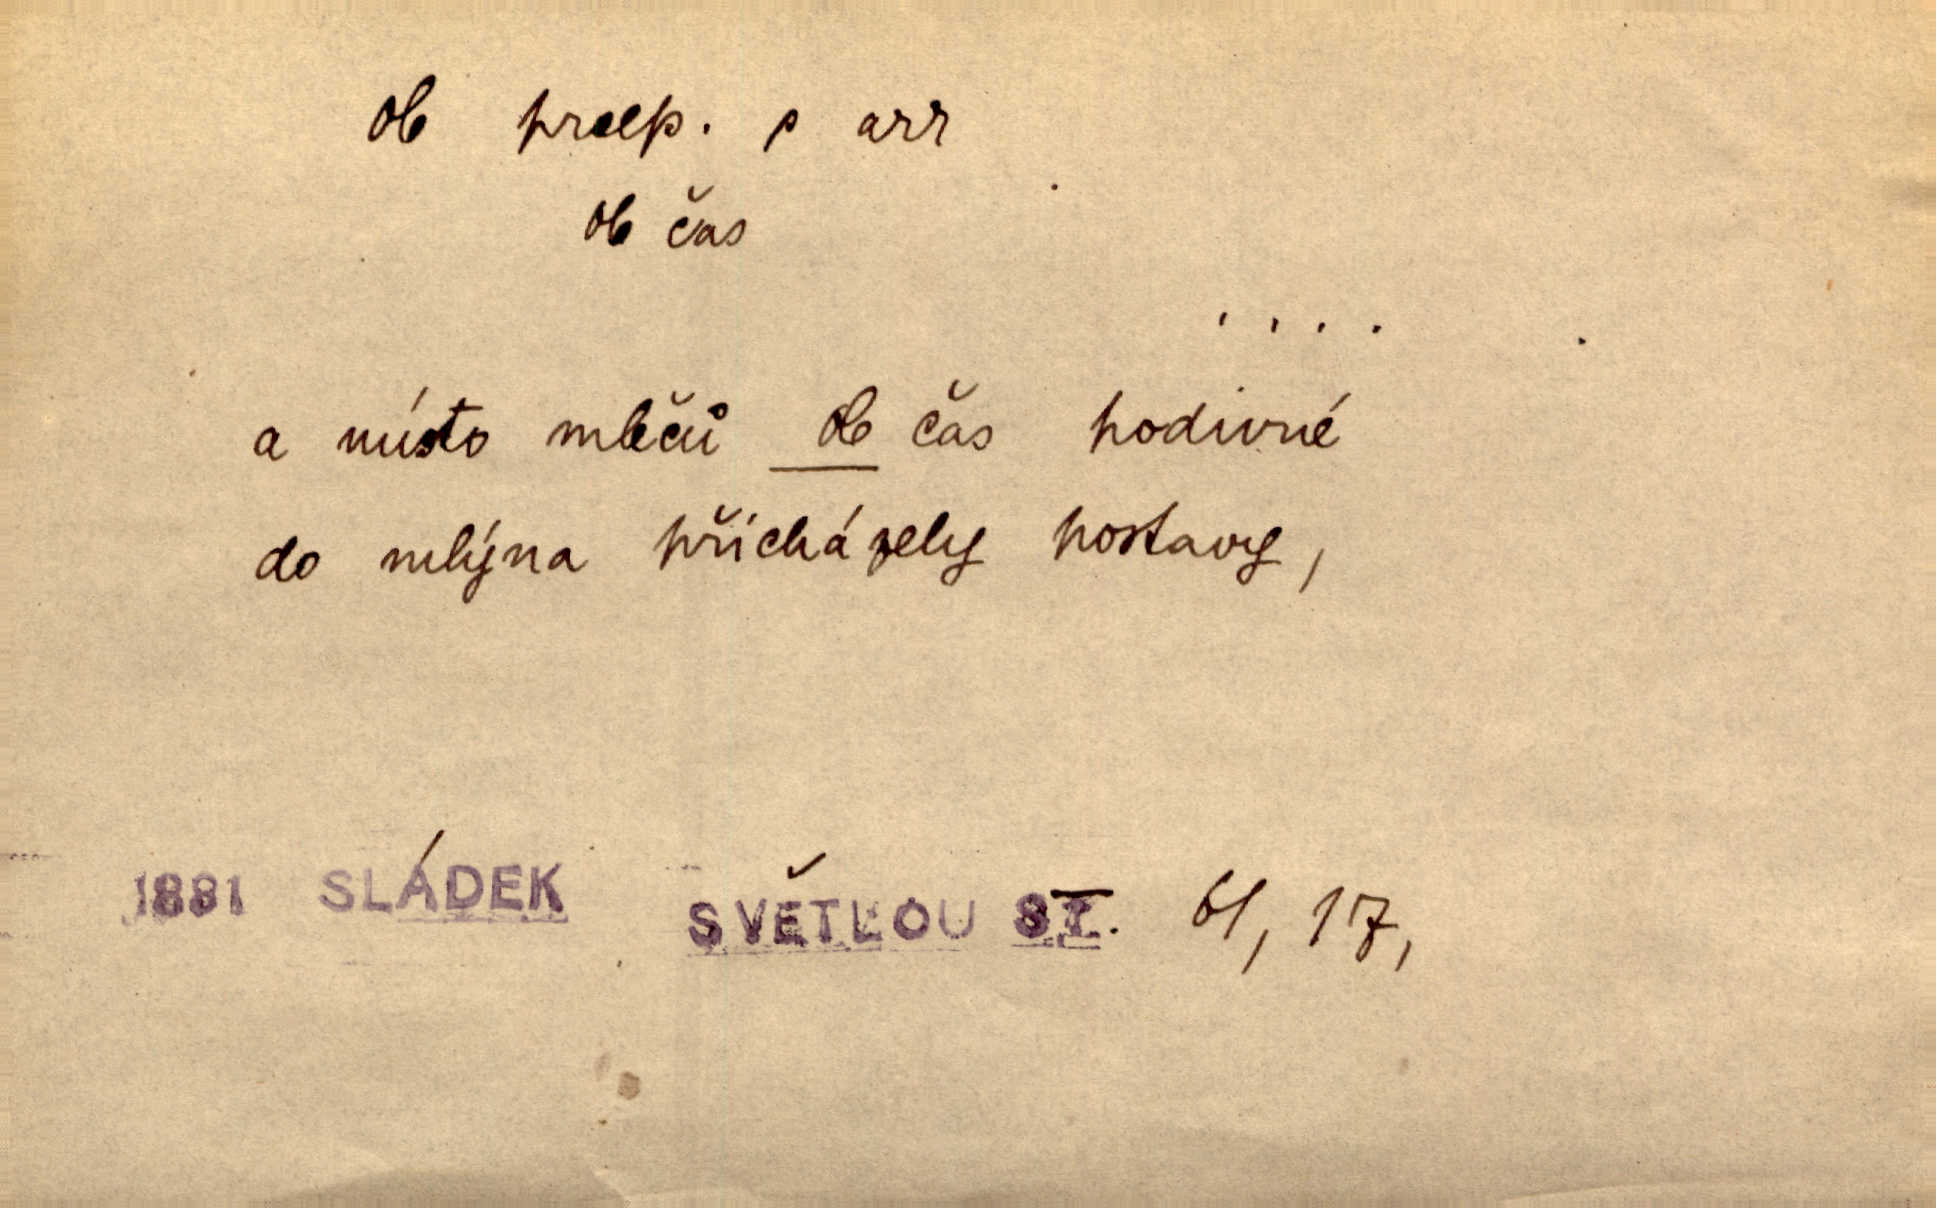 ob praep. s acc
ob čas
. . . .
a místo mlečů ob čas podivné
do mlýna přicházely postavy,
1881 SLÁDEK SVĚTLOU ST. 61, 17,